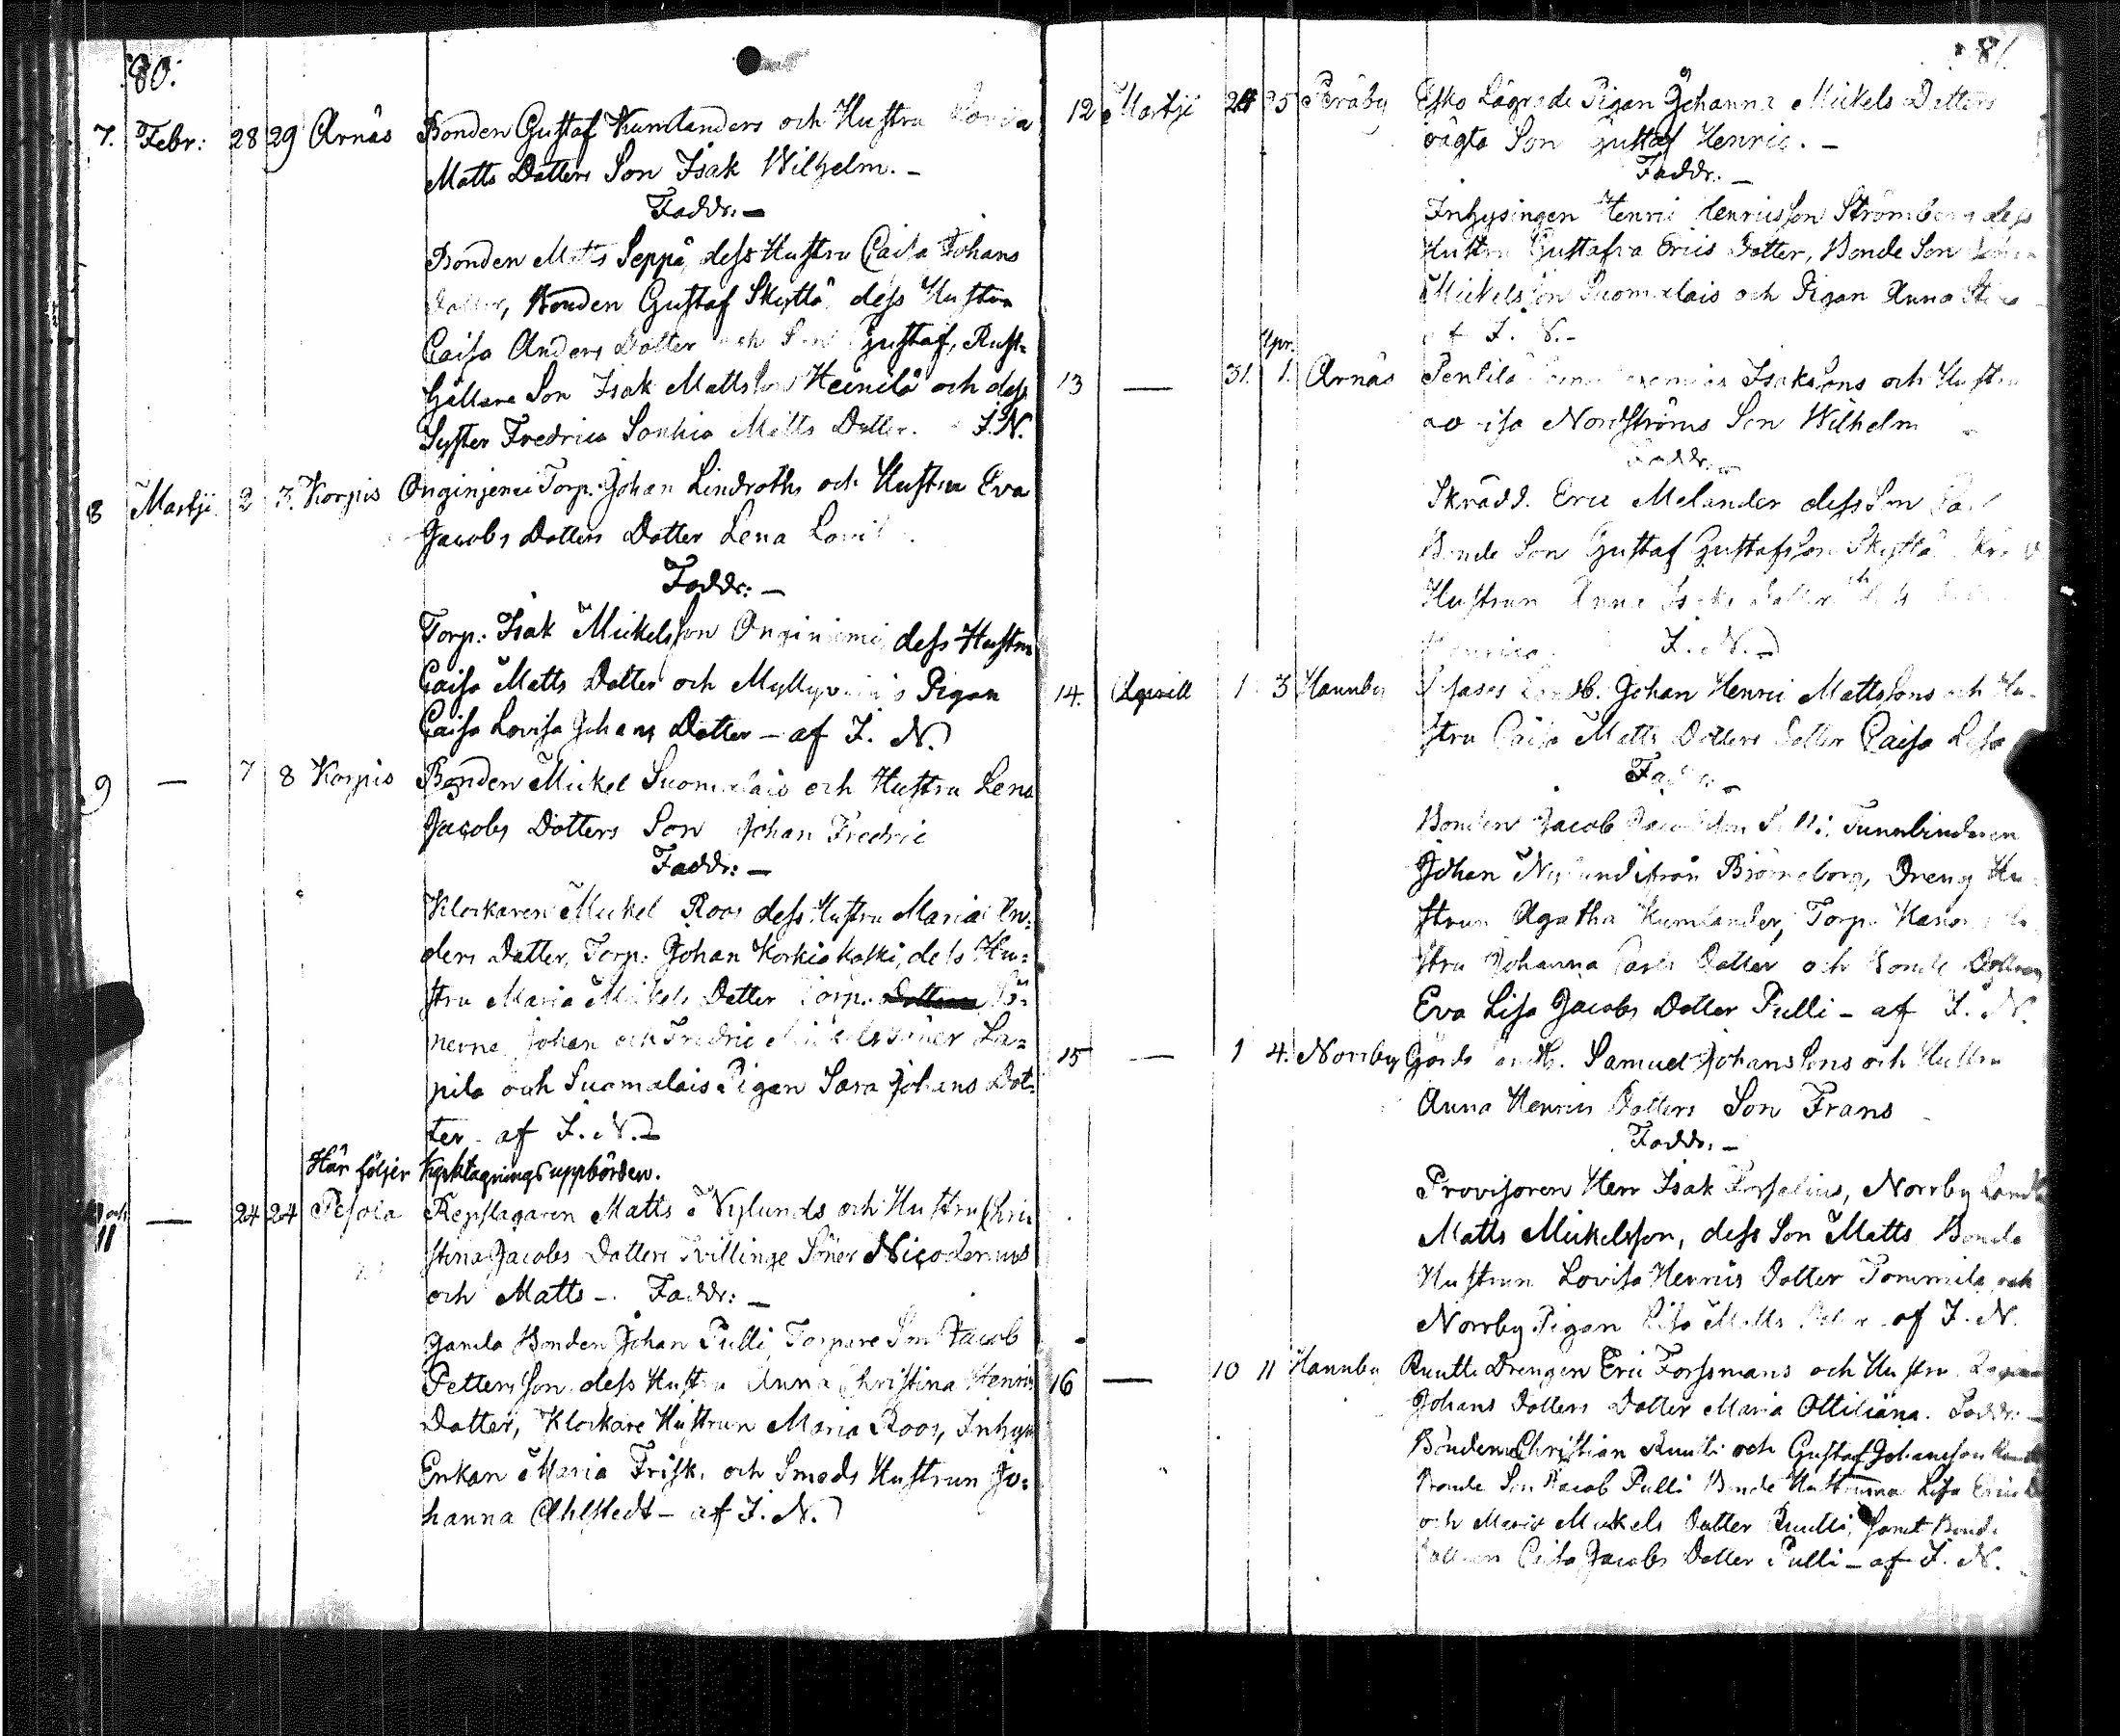 80.
7. Febr: 28 29 Arnäs Bonden Gustaf Kumlanders och Hustru
Matts Dotters Son Isak Wilhelm. -
Faddr: -
Bonden Matts Seppä, dess Hustru Caisa Johans
Dotter, Bonden Gustaf Skyttä, dess Hustru
Caisa Anders Dotter och Son Gustaf, Rust=
hållare Son Isak Mattsson Heinilä och dess
Syster Fredrica Sophia Matts Dotter. I. N.
8 Martji 2 3. Korpis Onginjemi Torp. Johan Lindroths och Hustru Eva
Jacobs Dotters Dotter Lena
Faddr: -
Torp. Isak Mickelsson Onginiemi dess Hustru
Caisa Matts Dotter och Pigan
Caisa Lovisa Johans Dotter - af I. N.
9 — 7 8 Korpis Bonden Mickel Suomalais och Hustru Lena
Jacobs Dotters Son Johan Fredric
Faddr: -
Klockaren Mickel Roos dess Hustru Maria An=
ders Dotter, Torp. Johan Korkiakoski, dess Hu=
stru Maria Mickels Dotter Torp. Sö=
nerne Johan och Fredric Mickels Söner La=
pila och Suomalais Pigan Sara Johans Dot=
ter - af I. N. -
Här följer Kyrktagnings uppbörden.
och 11 — 24 24 Pesola Repslagaren Matts Nylunds och Hustru Chri
stina Jacobs Dotters Tvillinge Söner Nicodemus
och Matts - Faddr: -
gamla Bonden Johan Pulli, Torpare Son Jacob
Pettersson, dess Hustru Anna Christina Henrics
Dotter, Klockare Hustrun Maria Roos, Inhys
Enkan Maria Frisk, och Smeds Hustrun Jo=
hanna Ahlstedt - af I. N.
81.
12 Martji 24 25 Peräby Esko Lägrade Pigan Johanna Mickels Dotters
oägta Son Gustaf Henric. -
Faddr: -
Inhysingen Henric Henricsson Strömberg dess
Hustru Gustafva Erics Dotter, Bonde Son
Mickelsson Suomalais och Pigan Anna
af I. N. -
13 — 31. Apr. 1. Arnäs Isakssons och Hustru
Nordströms Son Wilhelm -
Faddr: -
Skrädd. Eric Melander dess Son
Bonde Son Gustaf Gustafsson Skyttä
Hustrun Anna Isaks Dotter
I. N. -
14. Aprill 1 3 Hannby Landb. Johan Henric Mattssons och Hu=
stru Caisa Matts Dotters Dotter Caisa Lisa
Faddr: -
Bonden Jacob Tunnbindaren
Johan Nylund ifrån Björneborg, Dreng Hu=
strun Agatha Kumlander, Torp.
stru Johanna Dotter och Bonde Dottren
Eva Lisa Jacobs Dotter Pulli - af I. N.
15 — 1 4. Norrby Samuel Johanssons och Hustru
Anna Henrics Dotters Son Frans -
Faddr: -
Provisoren Herr Isak Forselius, Norrby Landb
Matts Mickelsson, dess Son Matts Bonde
Hustrun Lovisa Henrics Dotter Tommila och
Norrby Pigan Lisa Matts Dotter - af I. N.
16 — 10 11 Hannby Ruutti Drengen Eric Forssmans och Hustru
Johans Dotters Dotter Maria Ottiliana. Faddr: -
Bönderne Christian Ruutti och Gustaf Johansson
Bonde Son Jacob Pulli Bonde Hustrurna Lisa Erics
och Maria Mickels Dotter Ruutti, samt Bonde
Dottren Caisa Jacobs Dotter Pulli - af I. N.